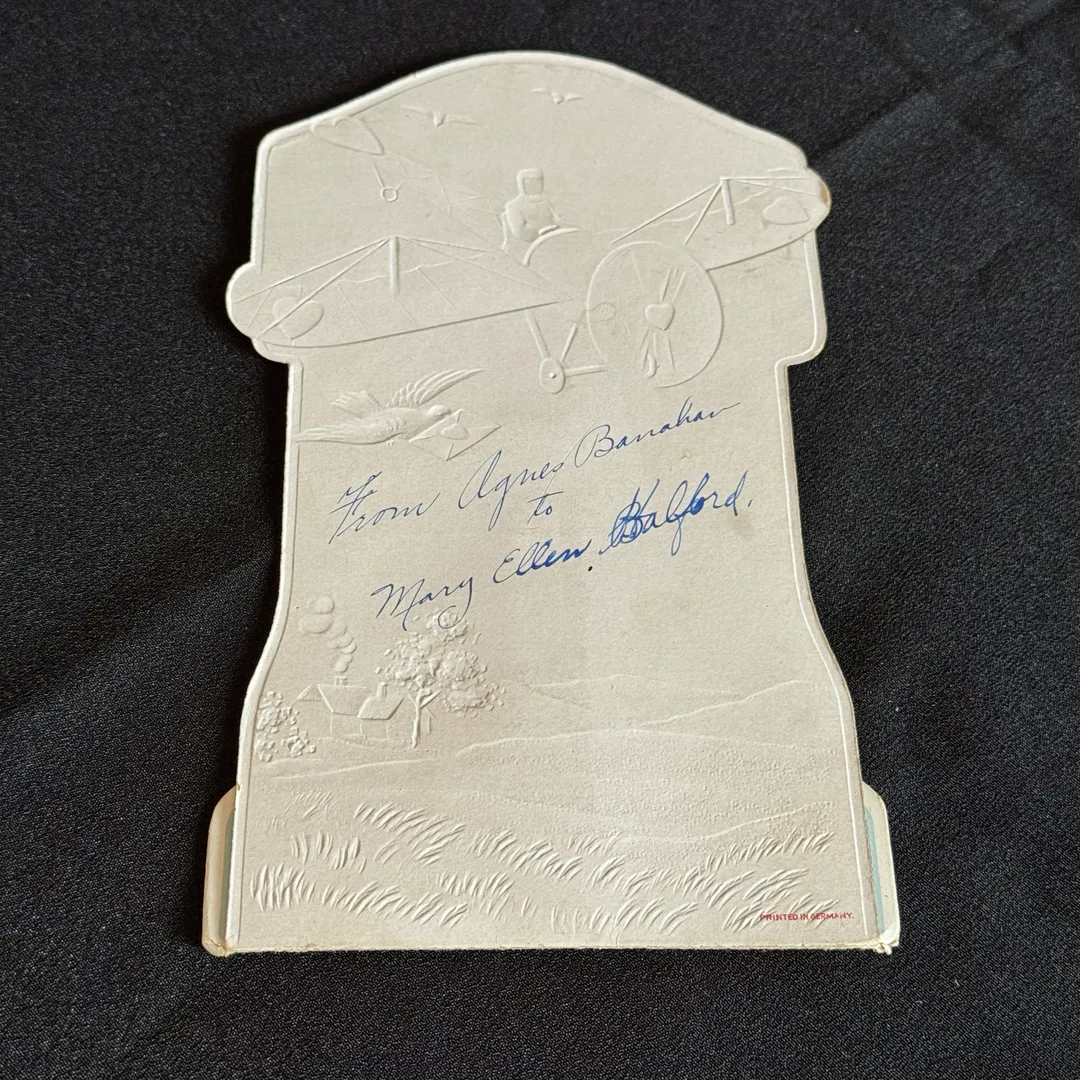 From Agnes Banahan
to
Mary Ellen Halford.
PRINTED IN GERMANY.